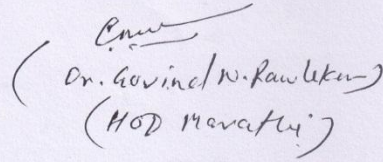 (Dr. Govind N. Rawlekar)
(HOD Marathi)